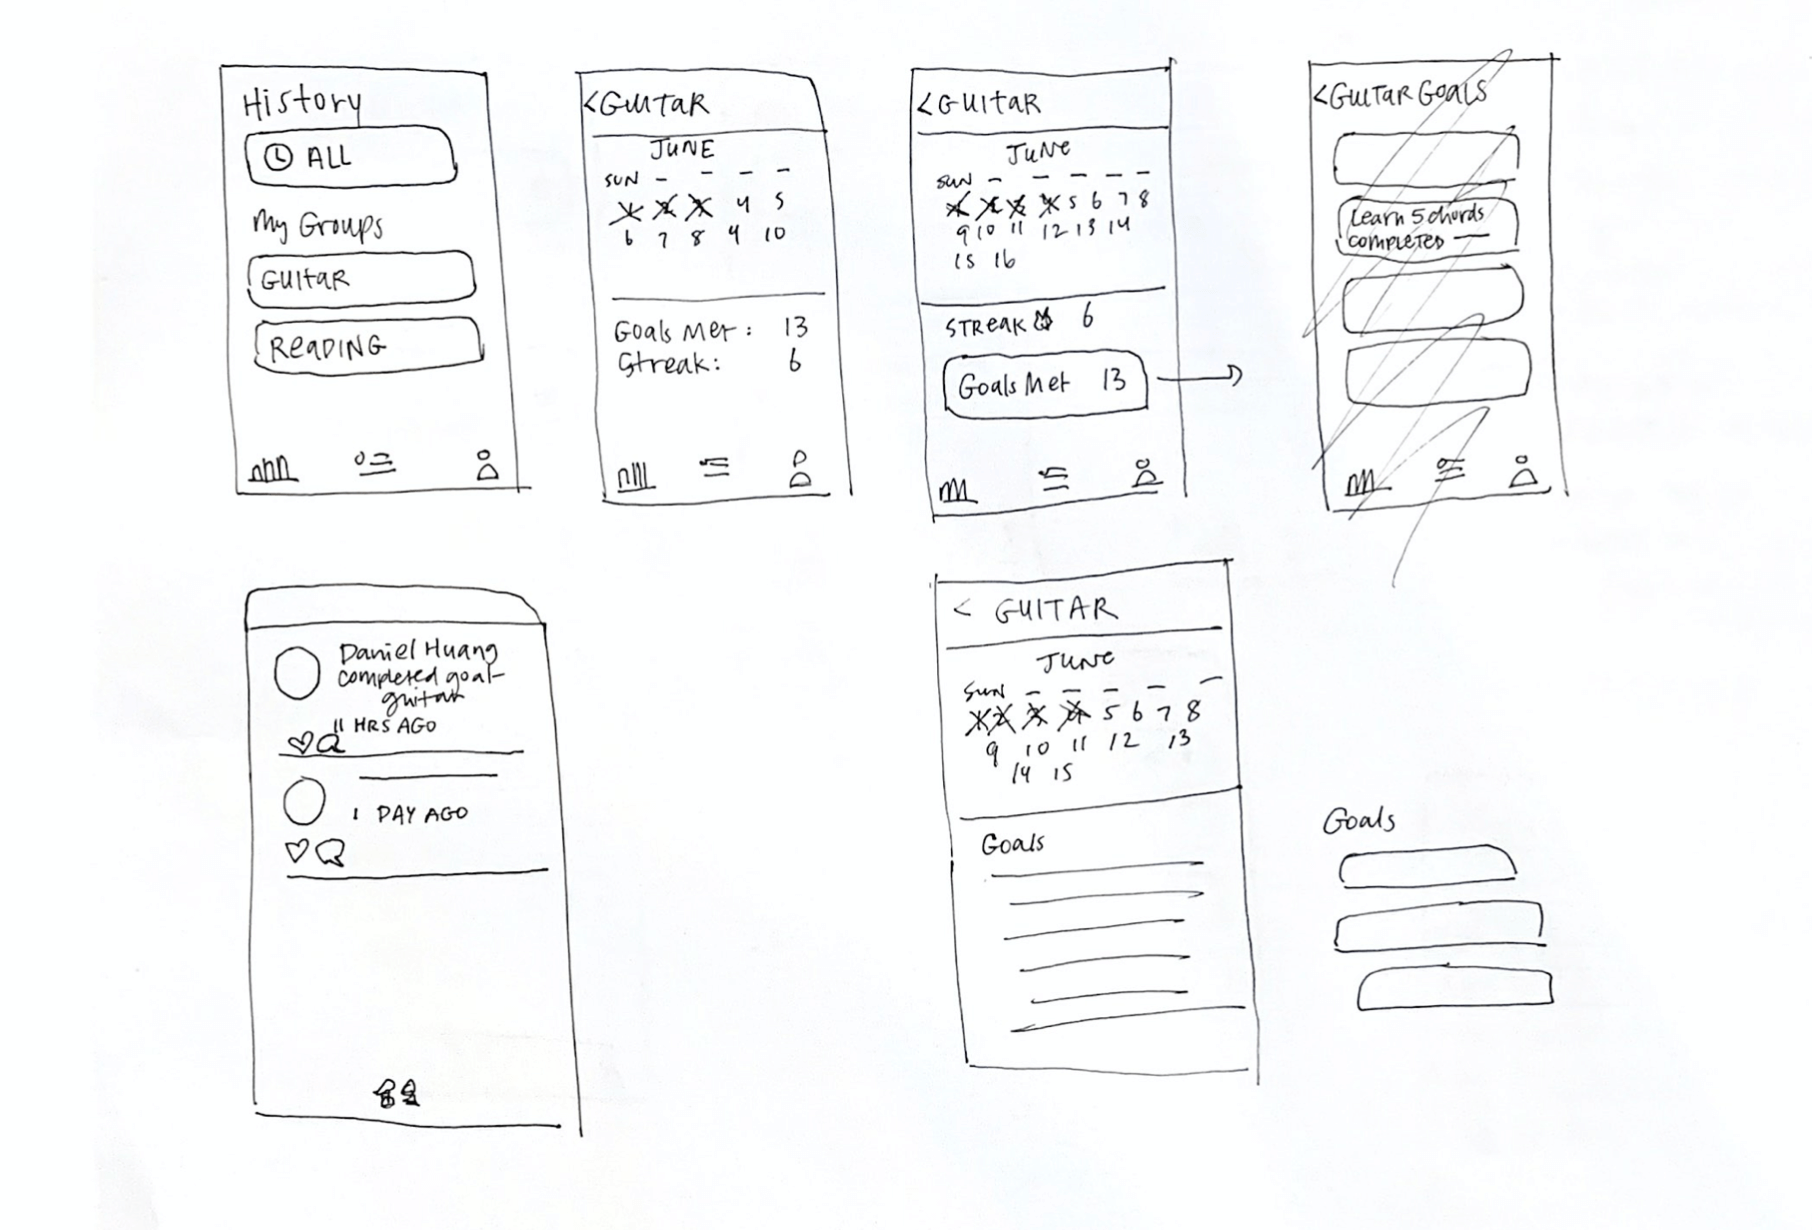 History
ALL
My Groups
GUITAR
READING
<GUITAR
JUNE
SUN - - - -
1 2 3 4 5
6 7 8 9 10
Goals Met: 13
Streak: 6
<GUITAR
JUNE
SUN - - - - -
1 2 3 4 5 6 7 8
9 10 11 12 13 14
15 16
STREAK 6
Goals Met 13
<GUITAR GOALS
Learn 5 chords
COMPLETED —
Daniel Huang
completed goal-
guitar
11 HRS AGO
1 DAY AGO
< GUITAR
JUNE
SUN - - - - -
1 2 3 4 5 6 7 8
9 10 11 12 13
14 15
Goals
Goals